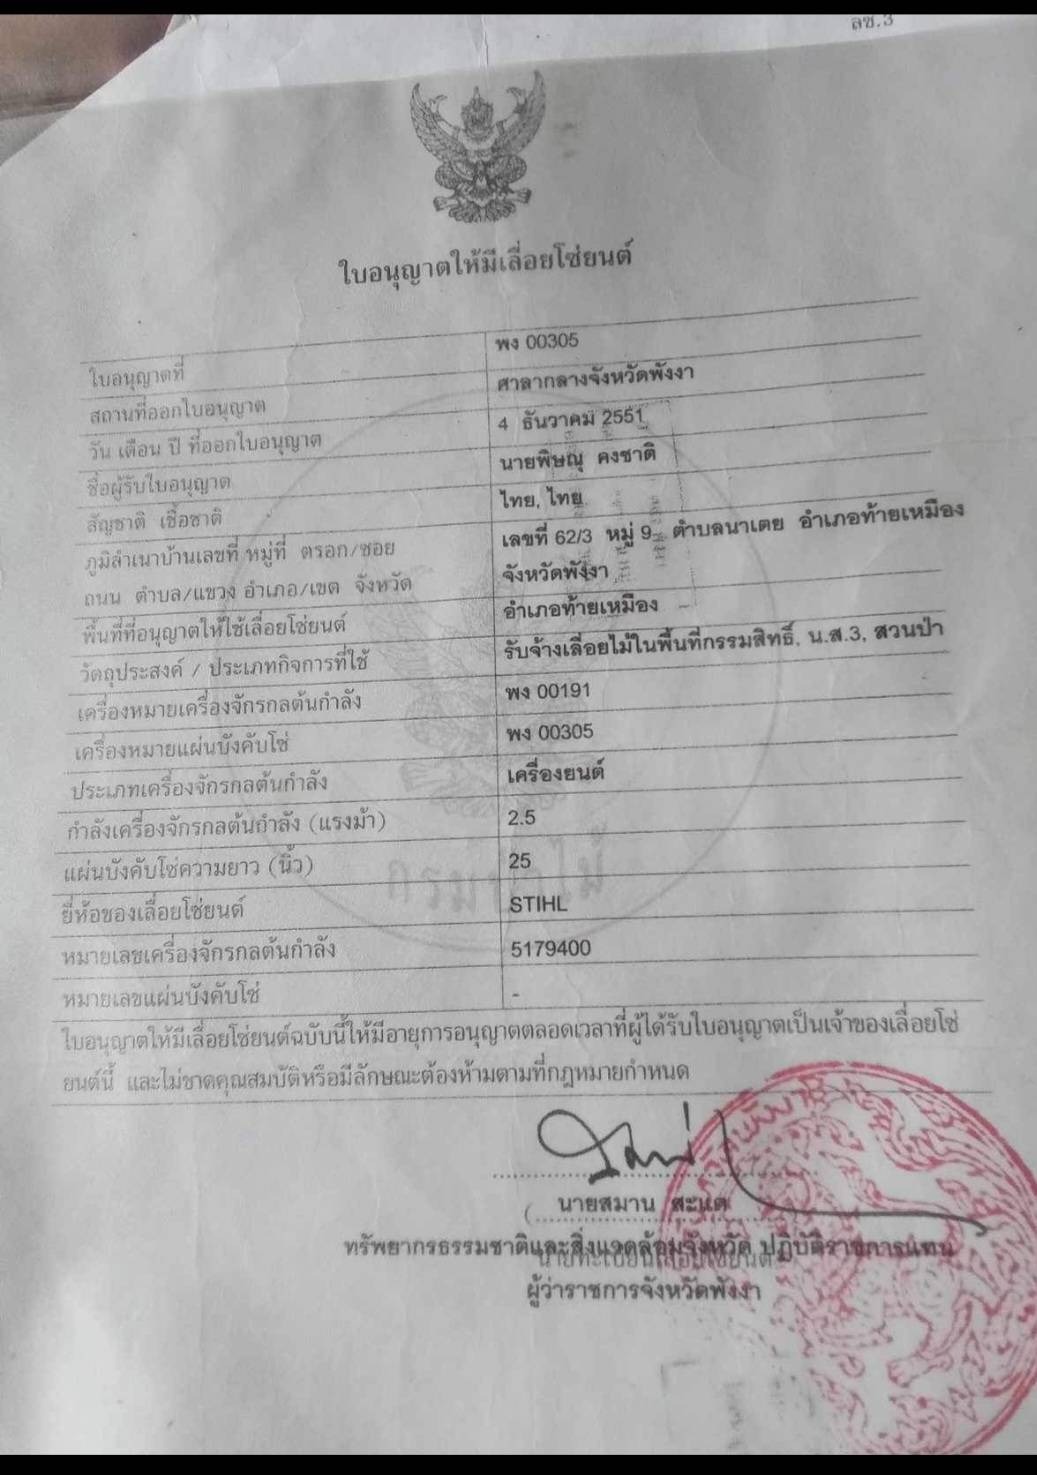 ลซ.3
ใบอนุญาตให้มีเลื่อยโซ่ยนต์
ใบอนุญาตที่ พง 00305
สถานที่ออกใบอนุญาต ศาลากลางจังหวัดพังงา
วัน เดือน ปี ที่ออกใบอนุญาต 4 ธันวาคม 2551
ชื่อผู้รับใบอนุญาต นายพิษณุ คงชาติ
สัญชาติ เชื้อชาติ ไทย, ไทย
ภูมิลำเนาบ้านเลขที่ หมู่ที่ ตรอก/ซอย เลขที่ 62/3 หมู่ 9 ตำบลนาเตย อำเภอท้ายเหมือง
ถนน ตำบล/แขวง อำเภอ/เขต จังหวัด จังหวัดพังงา
พื้นที่ที่อนุญาตให้ใช้เลื่อยโซ่ยนต์ อำเภอท้ายเหมือง
วัตถุประสงค์ / ประเภทกิจการที่ใช้ รับจ้างเลื่อยไม้ในพื้นที่กรรมสิทธิ์, น.ส.3, สวนป่า
เครื่องหมายเครื่องจักรกลต้นกำลัง พง 00191
เครื่องหมายแผ่นบังคับโซ่ พง 00305
ประเภทเครื่องจักรกลต้นกำลัง เครื่องยนต์
กำลังเครื่องจักรกลต้นกำลัง (แรงม้า) 2.5
แผ่นบังคับโซ่ความยาว (นิ้ว) 25
กรมป่าไม้
ยี่ห้อของเลื่อยโซ่ยนต์ STIHL
หมายเลขเครื่องจักรกลต้นกำลัง 5179400
หมายเลขแผ่นบังคับโซ่ -
ใบอนุญาตให้มีเลื่อยโซ่ยนต์ฉบับนี้ให้มีอายุการอนุญาตตลอดเวลาที่ผู้ได้รับใบอนุญาตเป็นเจ้าของเลื่อยโซ่
ยนต์นี้ และไม่ขาดคุณสมบัติหรือมีลักษณะต้องห้ามตามที่กฎหมายกำหนด
( นายสมาน สะแต )
ทรัพยากรธรรมชาติและสิ่งแวดล้อมจังหวัด ปฏิบัติราชการแทน
นายทะเบียนเลื่อยโซ่ยนต์
ผู้ว่าราชการจังหวัดพังงา